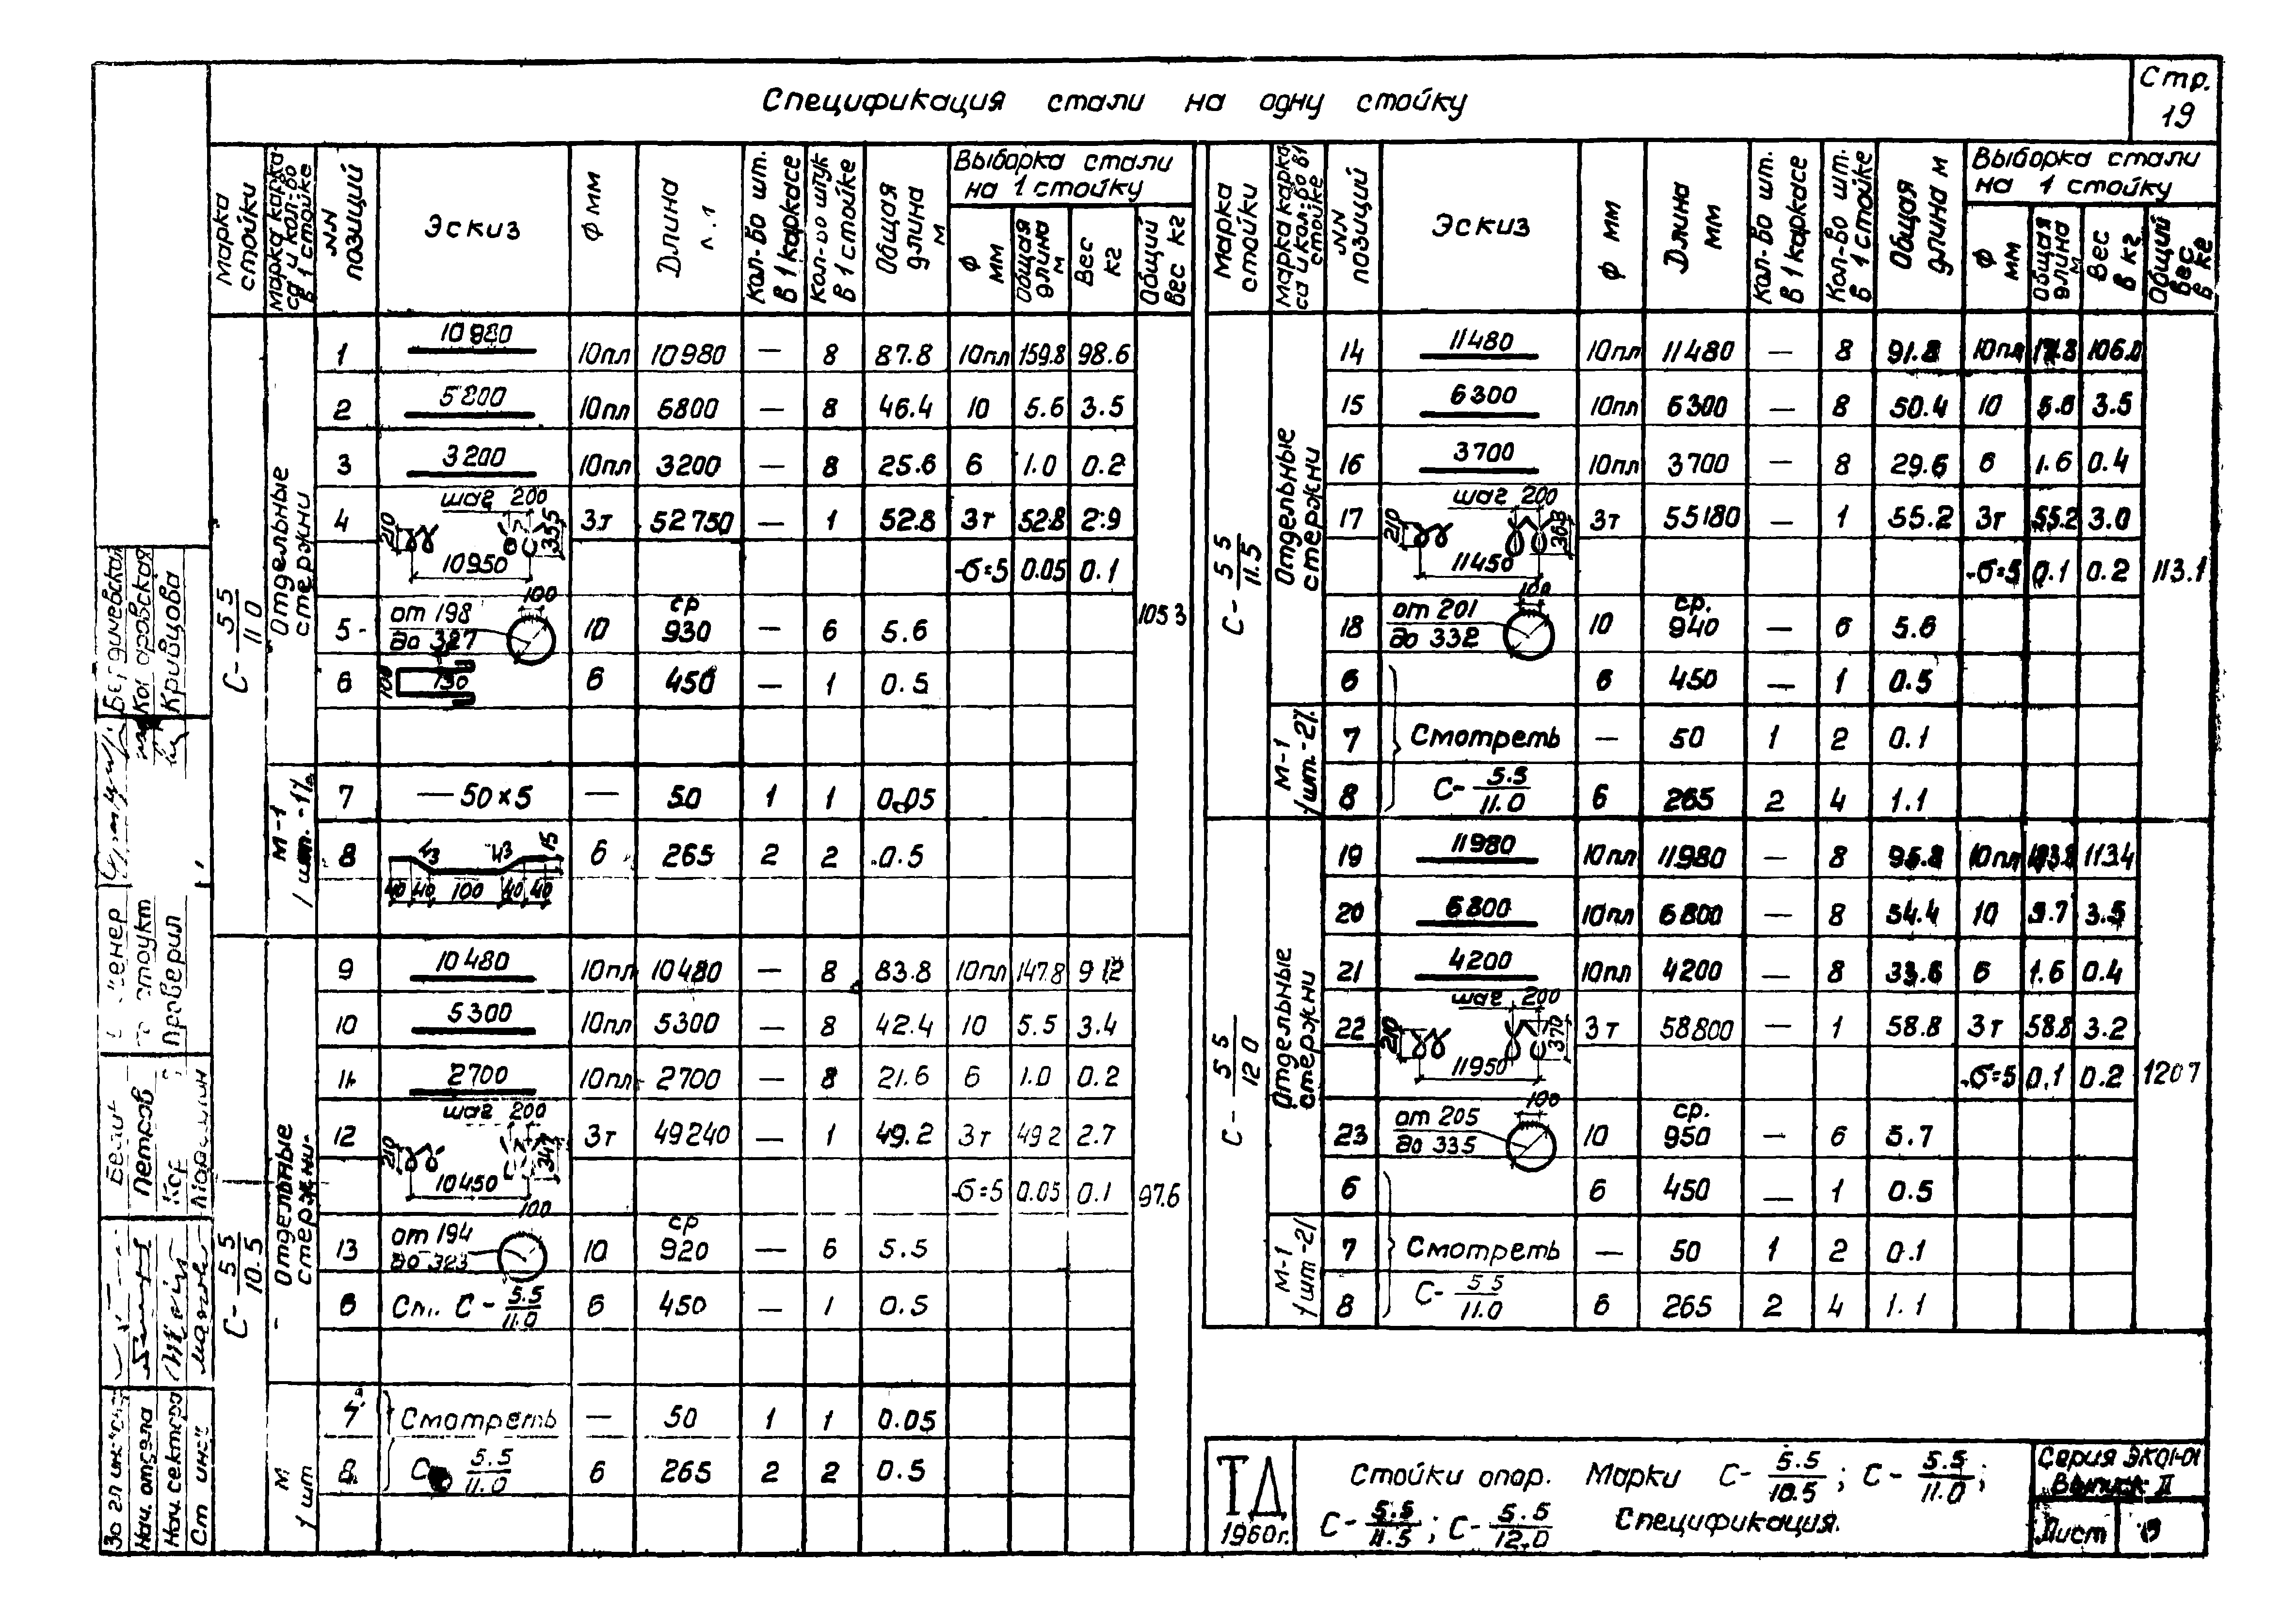 Спецификация стали на одну стойку
Стр.
19
Марка стойки
Марка каркаса и кол-во в 1 стойке
NN позиций
Эскиз
Ф мм
Длина
Кол-во шт. в 1 каркасе
Кол-во штук в 1 стойке
Общая длина м
Выборка стали на 1 стойку
Ф мм
Общая длина м
Вес кг
Общий вес кг
С- 5.5/11.0
Отдельные стержни
1 10980 10пл 10980 — 8 87.8 10пл 159.8 98.6
2 5800 10пл 5800 — 8 46.4 10 5.6 3.5
3 3200 10пл 3200 — 8 25.6 6 1.0 0.2
4 шаг 200 210 335 10950 3т 52750 — 1 52.8 3т 52.8 2.9
-б=5 0.05 0.1
105.3
5 от 198 до 327 100 10 ср 930 — 6 5.6
6 100 130 6 450 — 1 0.5
М-1 1 шт.
7 — 50×5 — 50 1 1 0.05
8 43 43 15 40 40 100 40 40 6 265 2 2 0.5
С- 5.5/10.5
Отдельные стержни
9 10480 10пл 10480 — 8 83.8 10пл 147.8 91.2
10 5300 10пл 5300 — 8 42.4 10 5.5 3.4
11 2700 10пл 2700 — 8 21.6 6 1.0 0.2
12 шаг 200 210 347 10450 3т 49240 — 1 49.2 3т 49.2 2.7
-б=5 0.05 0.1 97.6
13 от 194 до 323 100 10 ср 920 — 6 5.5
6 См. С- 5.5/11.0 6 450 — 1 0.5
М 1 шт
7 Смотреть — 50 1 1 0.05
8 С- 5.5/11.0 6 265 2 2 0.5
Марка стойки
Марка каркаса и кол-во в 1 стойке
NN позиций
Эскиз
Ф мм
Длина мм
Кол-во шт. в 1 каркасе
Кол-во шт. в 1 стойке
Общая длина м
Выборка стали на 1 стойку
Ф мм
Общая длина м
Вес в кг
Общий вес в кг
С- 5.5/11.5
Отдельные стержни
14 11480 10пл 11480 — 8 91.8 10пл 106.0
15 6300 10пл 6300 — 8 50.4 10 5.6 3.5
16 3700 10пл 3700 — 8 29.6 6 1.6 0.4
17 шаг 200 210 363 11450 3т 55180 — 1 55.2 3т 55.2 3.0
-б=5 0.1 0.2 113.1
18 от 201 до 332 100 10 ср. 940 — 6 5.6
6 6 450 — 1 0.5
М-1 1 шт.
7 Смотреть — 50 1 2 0.1
8 С- 5.5/11.0 6 265 2 4 1.1
С- 5.5/12.0
Отдельные стержни
19 11980 10пл 11980 — 8 95.8 10пл 183.8 113.4
20 6800 10пл 6800 — 8 54.4 10 5.7 3.5
21 4200 10пл 4200 — 8 33.6 6 1.6 0.4
22 шаг 200 210 370 11950 3т 58800 — 1 58.8 3т 58.8 3.2
-б=5 0.1 0.2 120.7
23 от 205 до 335 100 10 ср. 950 — 6 5.7
6 6 450 — 1 0.5
М-1 1 шт
7 Смотреть — 50 1 2 0.1
8 С- 5.5/11.0 6 265 2 4 1.1
ТД
1960г.
Стойки опор. Марки С- 5.5/10.5; С- 5.5/11.0;
С- 5.5/11.5; С- 5.5/12.0 Спецификация.
Серия ЭК-01-01
Выпуск II
Лист
Бердичевская
Кривцова
Проверил
Петров
Нач. отдела
Нач. сектора